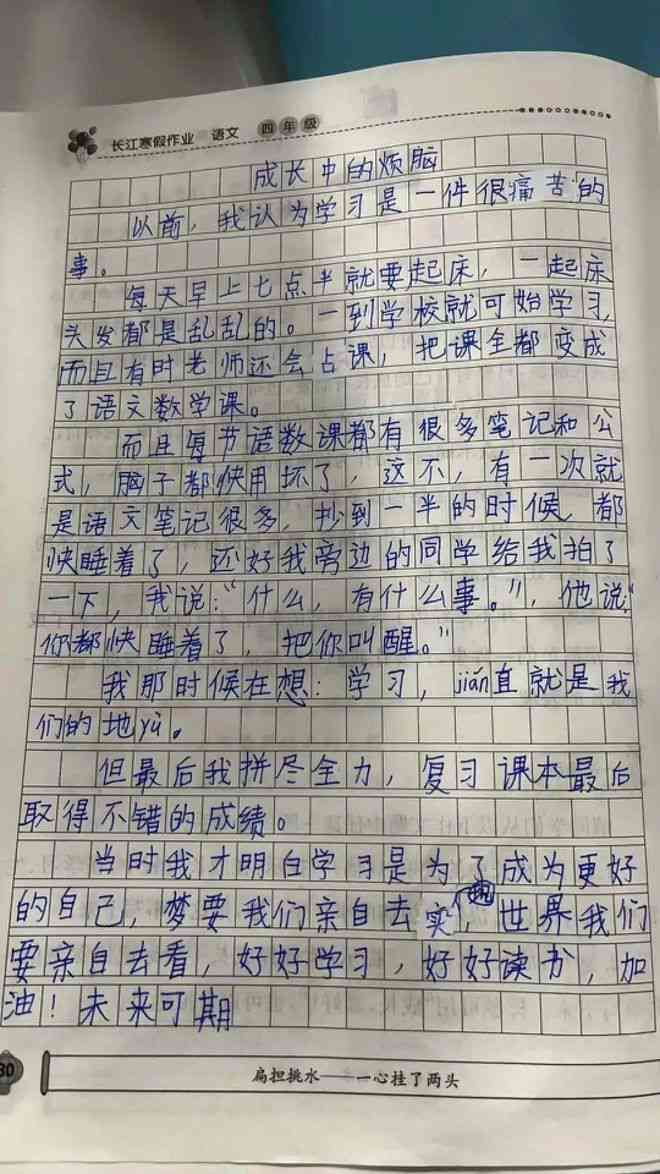 长江寒假作业 语文 四年级
成长中的烦脑
以前，我认为学习是一件很痛苦的
事。
每天早上七点半就要起床，一起床
头发都是乱乱的。一到学校就可始学习，
而且有时老师还会占课，把课全都变成
了语文数学课。
而且每节语数课都有很多笔记和公
式，脑子都快用坏了，这不，有一次就
是语文笔记很多，抄到一半的时候，都
快睡着了，还好我旁边的同学给我拍了
一下，我说：“什么，有什么事。”，他说：“
你都快睡着了，把你叫醒。”
我那时候在想：学习，jiǎn直就是我
们的地yù。
但最后我拼尽全力，复习课本最后
取得不错的成绩。
当时我才明白学习是为了成为更好
的自己，梦要我们亲自去实现，世界我们
要亲自去看，好好学习，好好读书，加
油！未来可期
80
扁担挑水——一心挂了两头